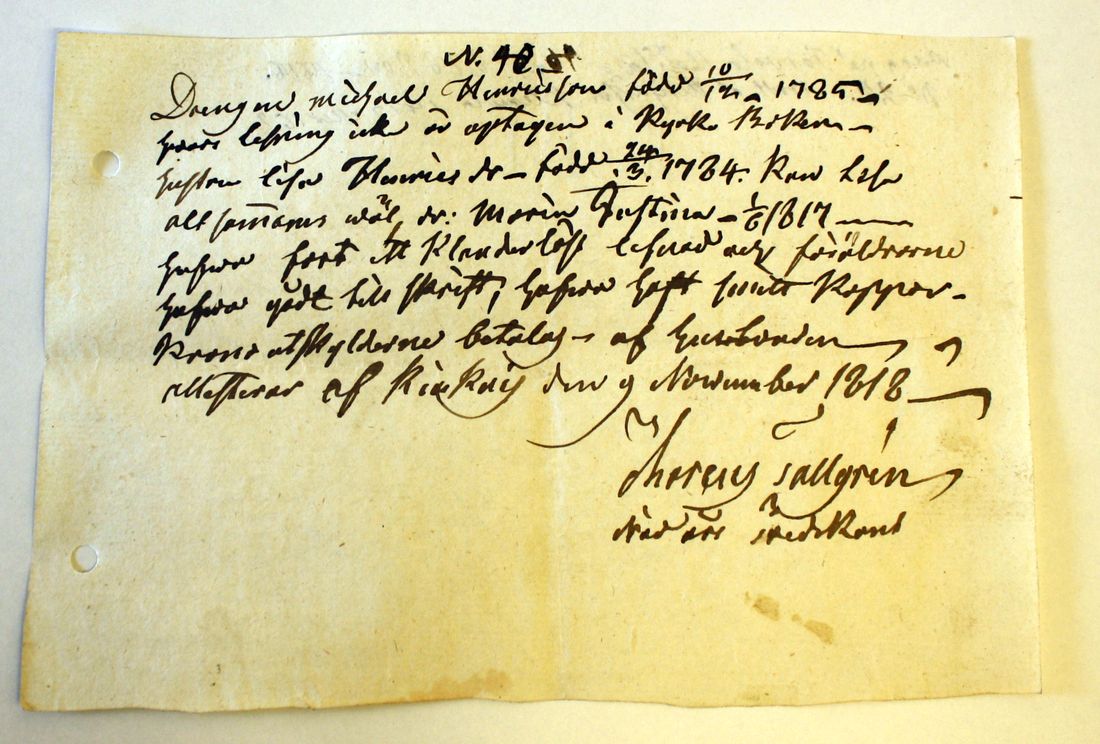 N. 42
Drengen Michael Henricsson född 10/12 1785
hvars läsning icke är optagen i Kyrko Boken
hustru Lisa Henrics dr född 24/3 1784. Kan läsa
altsammans wäl, dr: Maria Justina 1/6 1817
hafwa fört ett Klanderlöst lefnad och föräldrarne
hafwa gådt till skrift, hafwa haft smitt Koppor
Krono utskylderne betalas af husbonden
Attesterar af Kiukais den 9 November 1818
Thoreus Tallgren
Nåd års Predikant